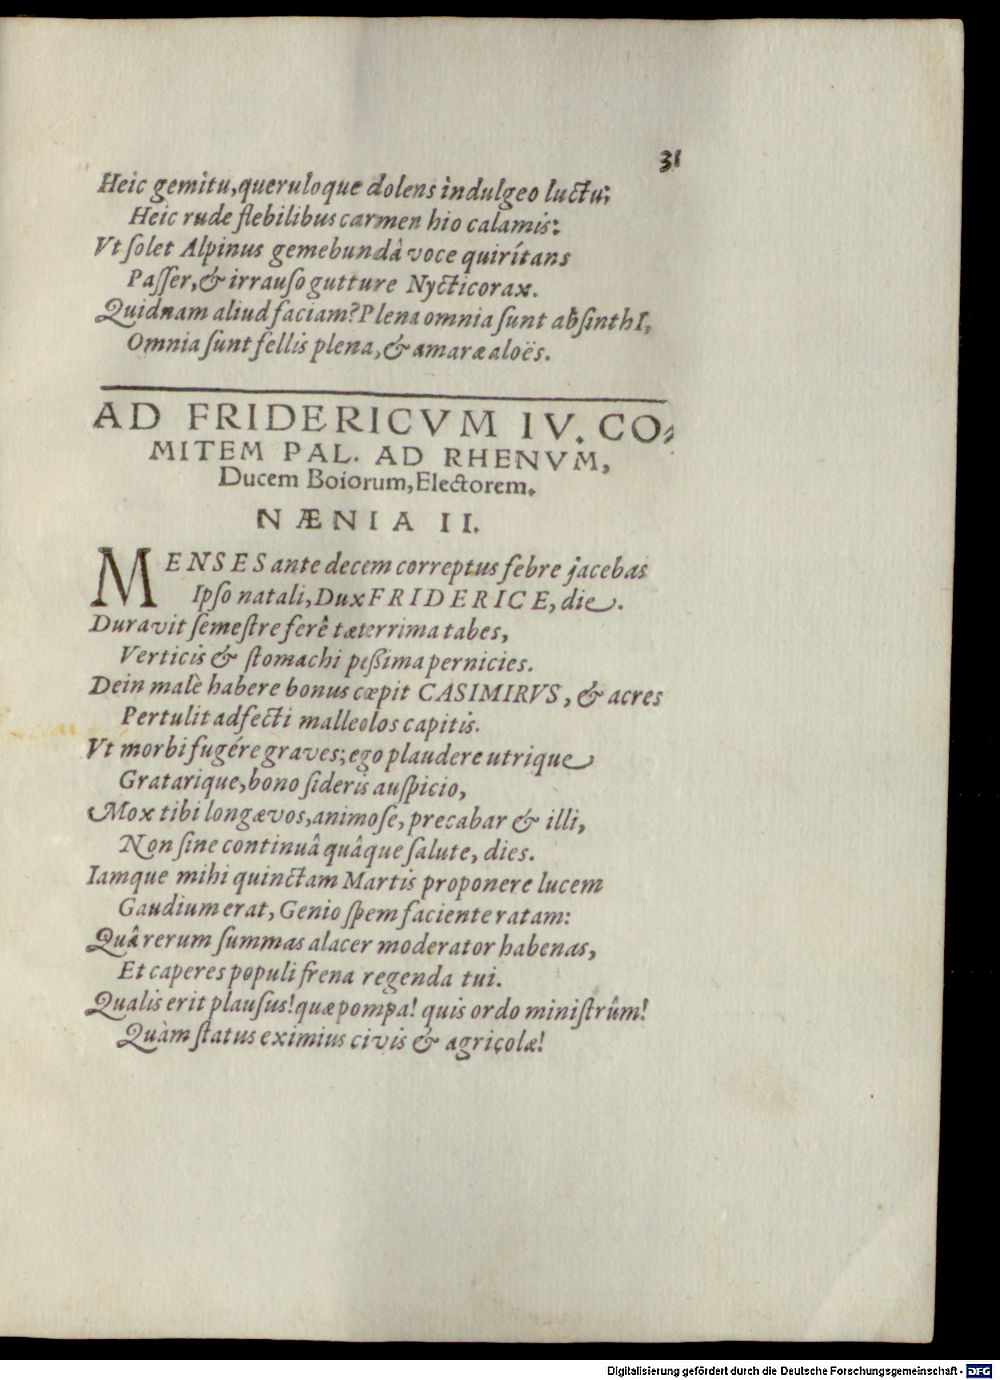 31
Heic gemitu, queruloque dolens indulgeo luctu;
Heic rude flebilibus carmen hio calamis:
Vt ſolet Alpinus gemebundâ voce quirítans
Paſſer, & irrauſo gutture Nycticorax.
Quidnam aliud faciam? Plena omnia ſunt abſinthI,
Omnia ſunt fellis plena, & amaræ aloës.
AD FRIDERICVM IV. CO-
MITEM PAL. AD RHENVM,
Ducem Boiorum, Electorem.
NÆNIA II.
MENSES ante decem correptus febre jacebas
Ipſo natali, Dux FRIDERICE, die.
Duravit ſemeſtre ferê tæterrima tabes,
Verticis & ſtomachi peßima pernicies.
Dein malè habere bonus cœpit CASIMIRVS, & acres
Pertulit adfecti malleolos capitis.
Vt morbi fugére graves; ego plaudere utrique
Gratarique, bono ſideris auſpicio,
Mox tibi longævos, animoſe, precabar & illi,
Non ſine continuâ quâque ſalute, dies.
Iamque mihi quinctam Martis proponere lucem
Gaudium erat, Genio ſpem faciente ratam:
Quâ rerum ſummas alacer moderator habenas,
Et caperes populi frena regenda tui.
Qualis erit plauſus! quæ pompa! quis ordo miniſtrûm!
Quàm ſtatus eximius civis & agricolæ!
Digitalisierung gefördert durch die Deutsche Forschungsgemeinschaft - DFG